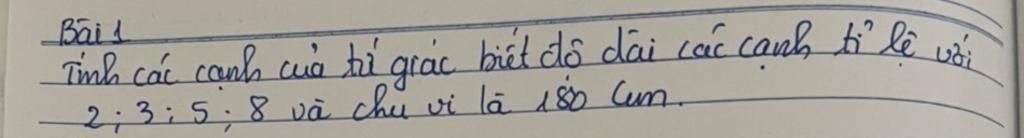 Bài 1
Tính các cạnh của tứ giác biết độ dài các cạnh tỉ lệ với
2; 3; 5; 8 và chu vi là 180 cm.